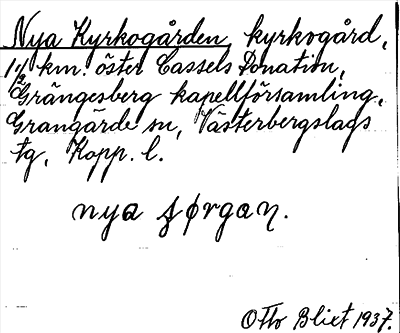 Nya Kyrkogården, kyrkogård,
1 1/2 km. öster Cassels Donation,
Grängesberg kapellförsamling,
Grangärde sn, Västerbergslags
tg, Kopp. l.
nya
Otto Bliet 1937.